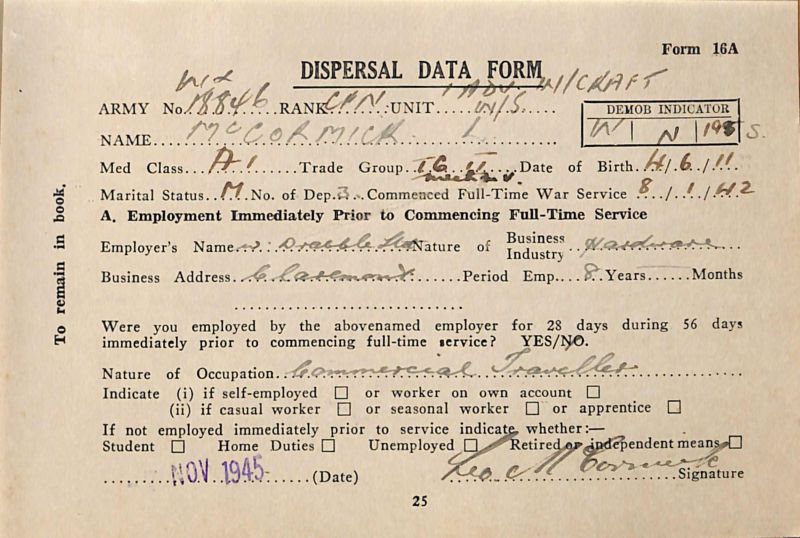 Form 16A
DISPERSAL DATA FORM
WX 1 ADV. W/CRAFT
ARMY No. 18846 RANK CPN UNIT W/S.
DEMOB INDICATOR
W N 195 S.
NAME McCORMICK L
Med Class A1 Trade Group TG II Date of Birth 4/6/11
Marital Status M No. of Dep. 3 Commenced Full-Time War Service 8/1/42
A. Employment Immediately Prior to Commencing Full-Time Service
Employer's Name W. Drabble Ltd Nature of Business Industry Hardware
Business Address Claremont Period Emp. 8 Years Months
Were you employed by the abovenamed employer for 28 days during 56 days
immediately prior to commencing full-time service? YES/NO.
Nature of Occupation Commercial Traveller
Indicate (i) if self-employed or worker on own account
(ii) if casual worker or seasonal worker or apprentice
If not employed immediately prior to service indicate whether:—
Student Home Duties Unemployed Retired or independent means
NOV 1945 (Date) Leo McCormick Signature
25
To remain in book.